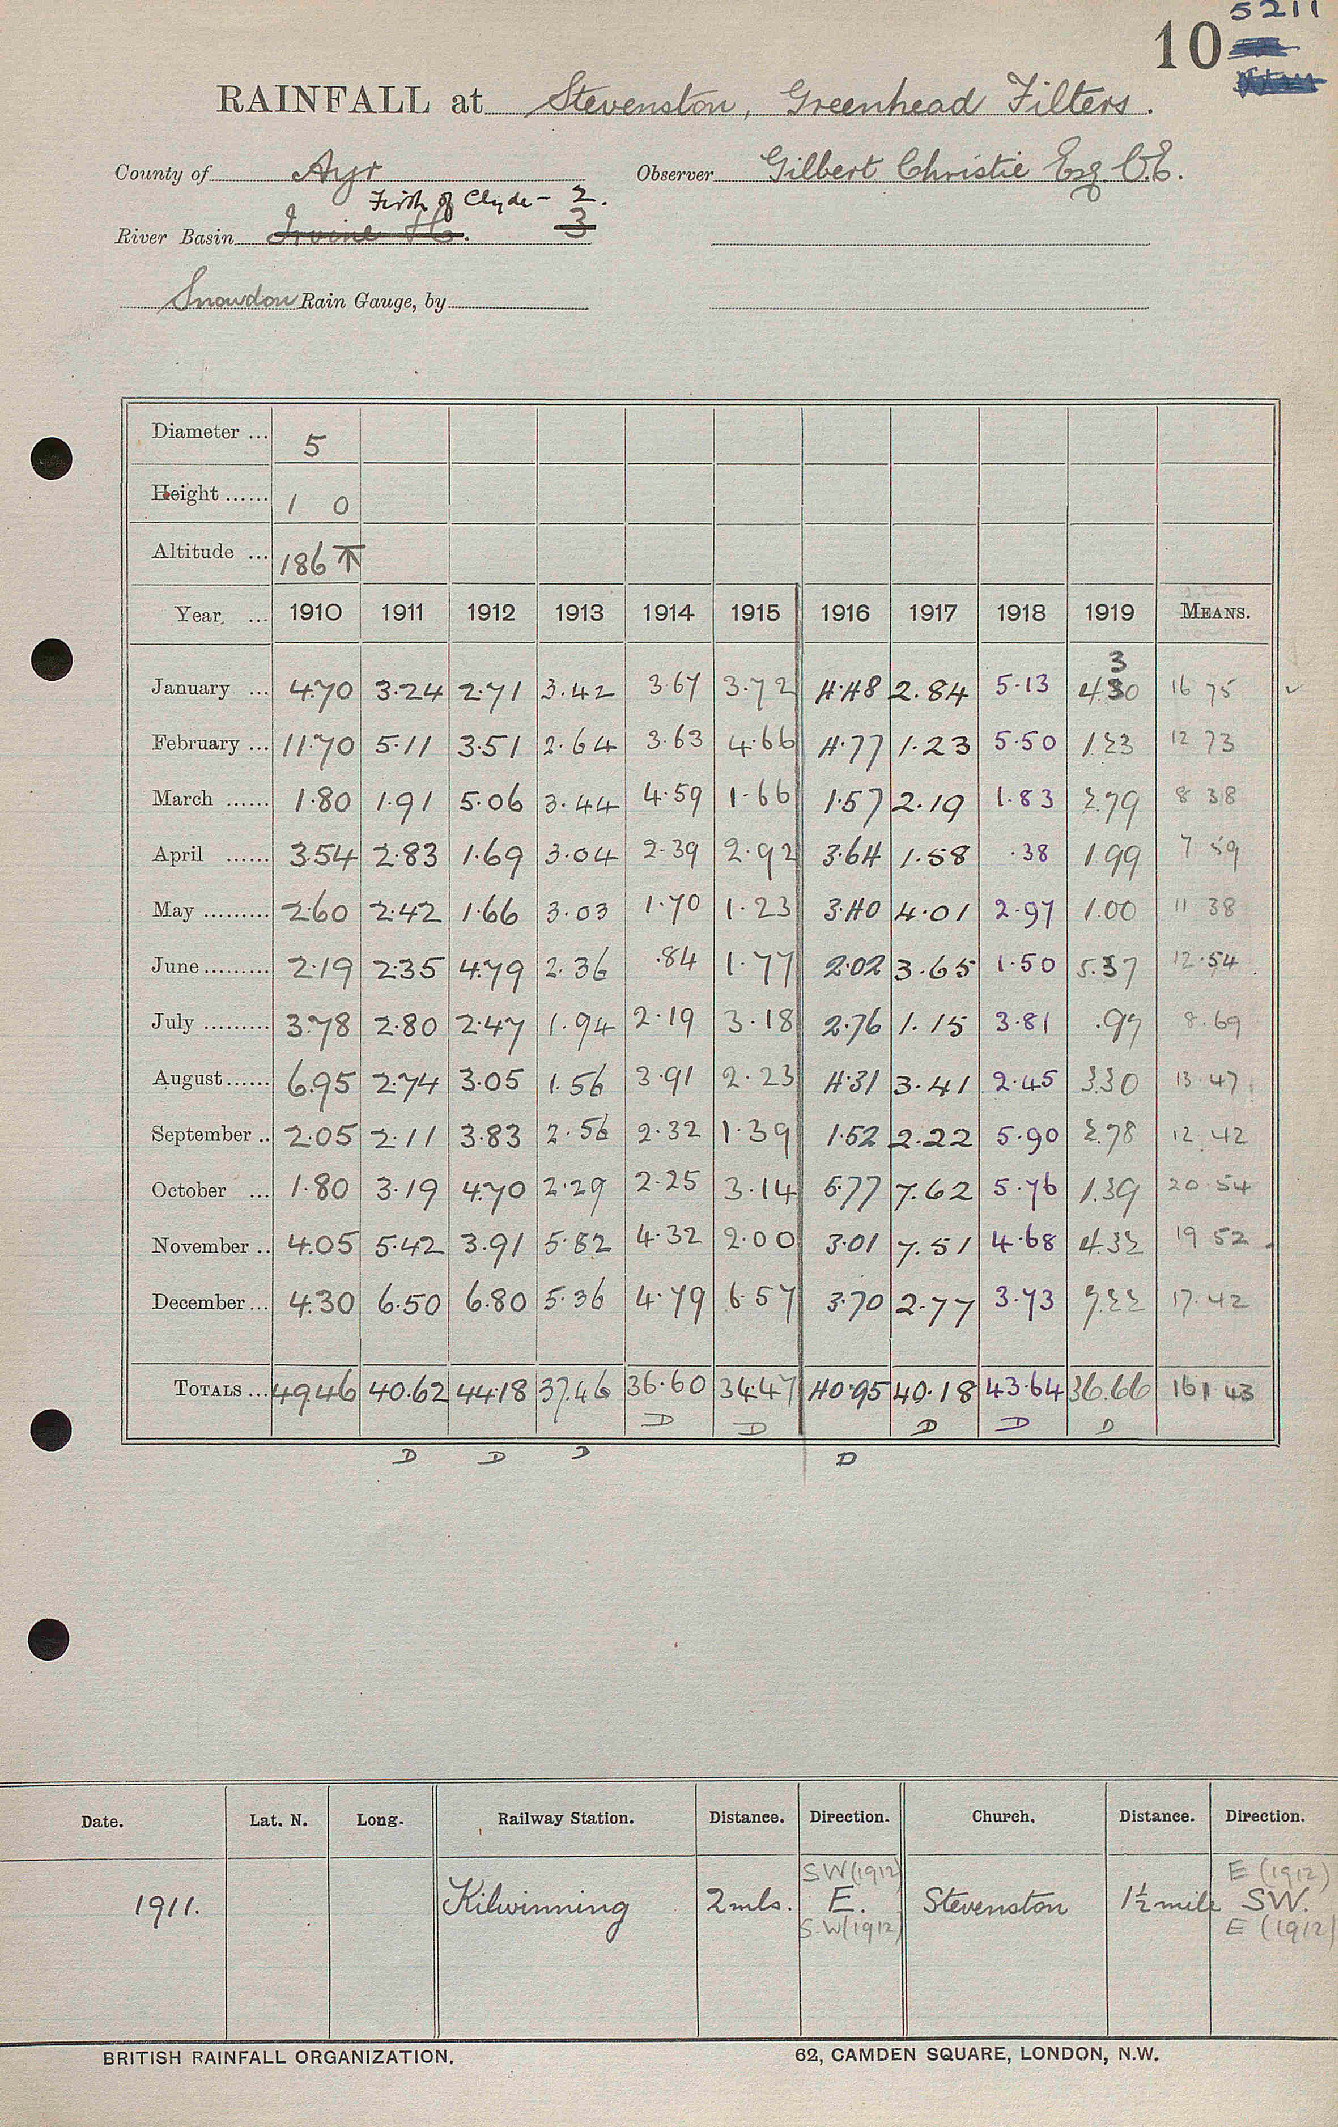 5211
10
RAINFALL at Stevenston, Greenhead Filters.
County of Ayr Observer Gilbert Christie Esq C.E.
Firth of Clyde - 2.
River Basin Irvine &c. 3
Snowdon Rain Gauge, by
Diameter ... 5
Height ...... 1 0
Altitude ... 186
Year ... 1910 1911 1912 1913 1914 1915 1916 1917 1918 1919 MEANS.
3
January ... 4.70 3.24 2.71 3.42 3.67 3.72 4.48 2.84 5.13 4.30 16 75
February ... 11.70 5.11 3.51 2.64 3.63 4.66 4.77 1.23 5.50 1.23 12 73
March ...... 1.80 1.91 5.06 3.44 4.59 1.66 1.57 2.19 1.83 2.79 8 38
April ...... 3.54 2.83 1.69 3.04 2.39 2.92 3.64 1.58 .38 1.99 7 59
May ......... 2.60 2.42 1.66 3.03 1.70 1.23 3.40 4.01 2.97 1.00 11 38
June ......... 2.19 2.35 4.79 2.36 .84 1.77 2.02 3.65 1.50 5.37 12.54
July ......... 3.78 2.80 2.47 1.94 2.19 3.18 2.76 1.15 3.81 .97 8.69
August ...... 6.95 2.74 3.05 1.56 3.91 2.23 4.31 3.41 2.45 3.30 13 47
September .. 2.05 2.11 3.83 2.56 2.32 1.39 1.52 2.22 5.90 2.78 12.42
October ... 1.80 3.19 4.70 2.29 2.25 3.14 5.77 7.62 5.76 1.39 20.54
November .. 4.05 5.42 3.91 5.82 4.32 2.00 3.01 7.51 4.68 4.32 19 52
December ... 4.30 6.50 6.80 5.36 4.79 6.57 3.70 2.77 3.73 7.22 17.42
TOTALS ... 49.46 40.62 44.18 37.46 36.60 34.47 40.95 40.18 43.64 36.66 161 43
D D D D D
D D D D
Date. Lat. N. Long. Railway Station. Distance. Direction. Church. Distance. Direction.
SW (1912) E (1912)
1911. Kilwinning 2 mls. E. Stevenston 1½ mile SW.
S.W (1912) E (1912)
BRITISH RAINFALL ORGANIZATION. 62, CAMDEN SQUARE, LONDON, N.W.